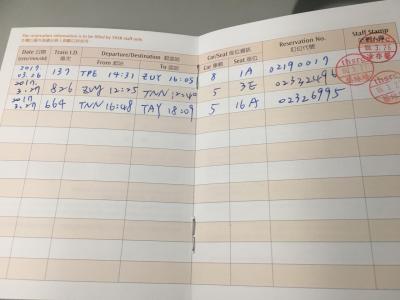 The reservation information is to be filled by THSR staff only.
Date 日期 Train I.D. Departure/Destination 起訖站 Car/Seat 座位資訊 Reservation No. Staff Stamp
(mm/dd) 車次 From 起站 To 訖站 Car 車廂 Seat 座位 訂位代號
2017 03.26 137 TPE 14:31 ZUY 16:05 8 1A 02190017
2017. 3.27 826 ZUY 12:25 TNN 5 3E
2017 3.27 664 TNN 16:48 TAY 18:09 5 16A 02326995
thsrc
thsrc